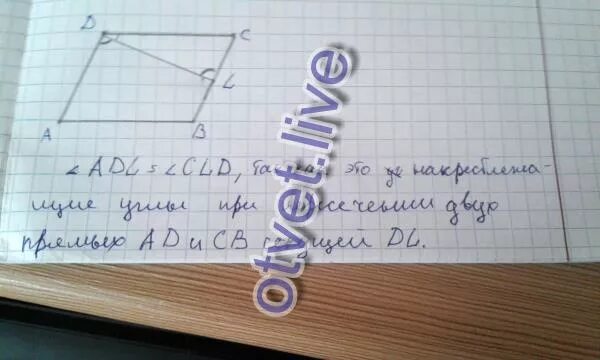 D
C
L
A
B
∠ADL = ∠CLD, так как это накрестлежа-
щие углы при пересечении двух
прямых AD и CB секущей DL.
otvet.live